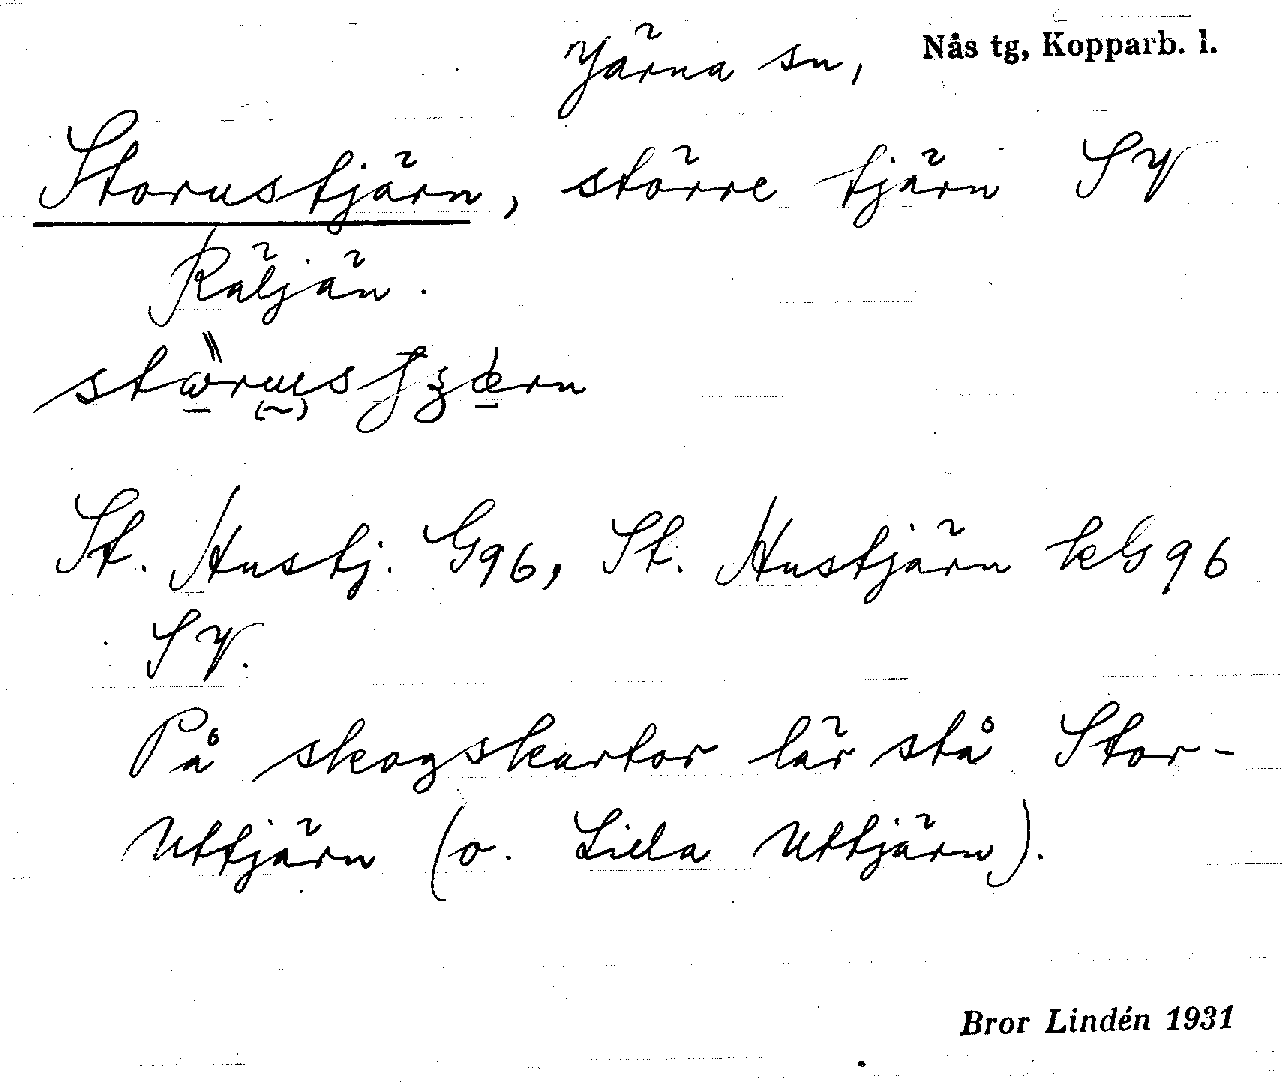 Järna sn, Nås tg, Kopparb. l.
Storustjärn, större tjärn SV
Räljän.
St. Hustj. G96, St. Hustjärn kG96
SV.
På skogskartor lär stå Stor-
Uttjärn (o. Lilla Uttjärn).
Bror Lindén 1931